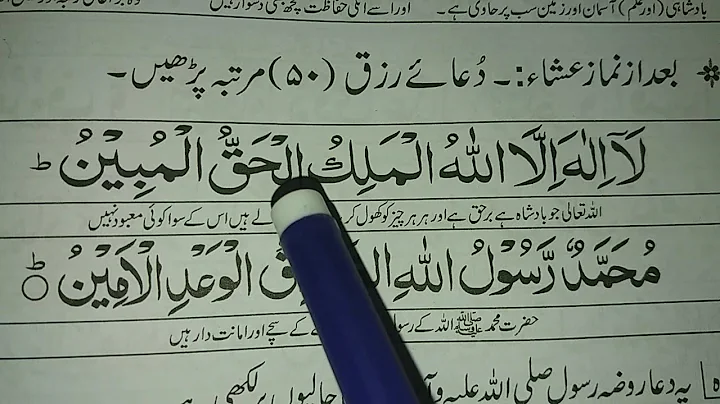 بادشاہی (اور علم) آسمان اور زمین سب پر حاوی ہے۔ اور اسے انکی حفاظت کچھ بھی دشوار نہیں
بعد از نماز عشاء:۔ دُعائے رزق (۵۰) مرتبہ پڑھیں۔
لَآ اِلٰهَ اِلَّا اللّٰهُ الْمَلِكُ الْحَقُّ الْمُبِيْنُ ط
اللہ تعالیٰ جو بادشاہ ہے برحق ہے اور ہر ہر چیز کو کھول کر والے ہیں اس کے سوا کوئی معبود نہیں
مُحَمَّدٌ رَّسُوْلُ اللّٰهِ الْوَعْدِ الْاَمِيْنُ ط
حضرت محمد ﷺ اللہ کے کے سچے اور امانت دار ہیں
یہ دعا روضہ رسول صلی اللہ علیہ جالیوں پر لکھی ہے